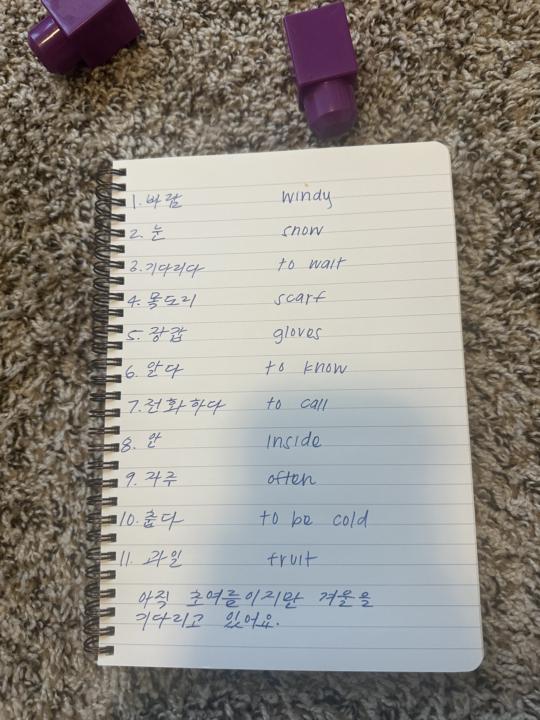 1. 바람 windy
2. 눈 snow
3. 기다리다 to wait
4. 목도리 scarf
5. 장갑 gloves
6. 알다 to know
7. 전화하다 to call
8. 안 inside
9. 자주 often
10. 춥다 to be cold
11. 과일 fruit
아직 초여름이지만 겨울을
기다리고 있어요.